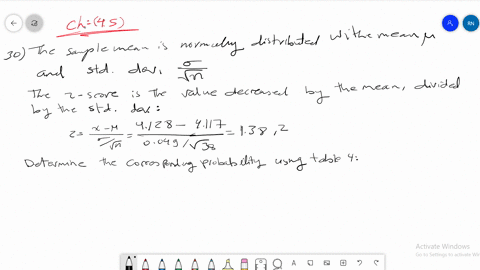 Ch=(4.5)
RN
30) The sample mean is normally distributed with mean μ
and std. dev. σ/√n
The z-score is the value decreased by the mean, divided
by the std. dev:
z = x-μ / σ/√n = 4.128 - 4.117 / 0.049/√38 = 1.38, 2
Determine the corresponding probability using table 4:
Activate Windows
Go to Settings to activate Windows.